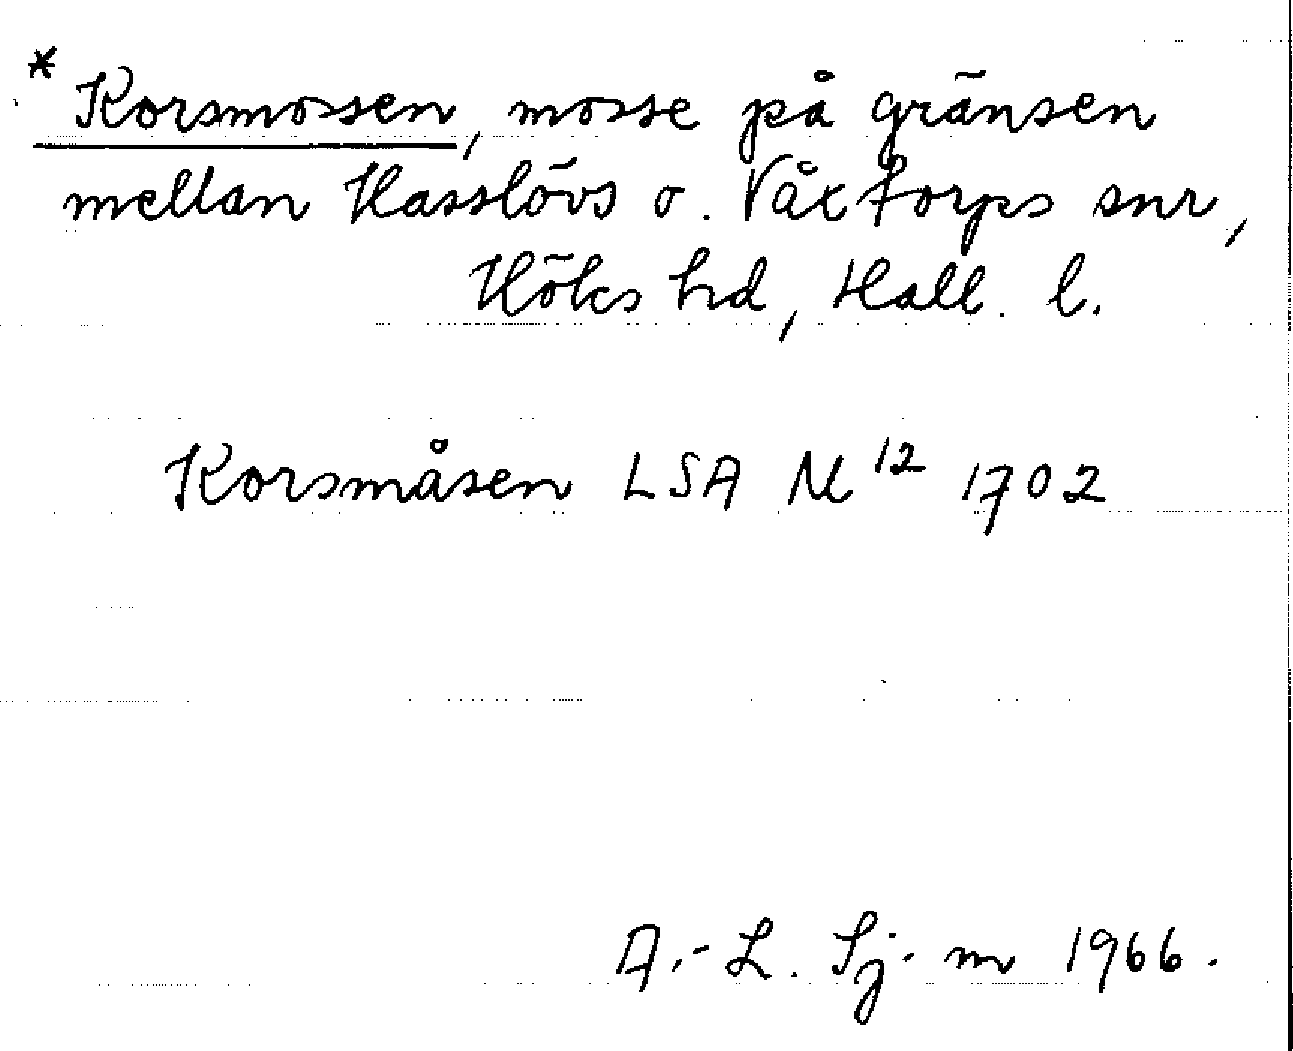 * Korsmossen, mosse på gränsen
mellan Hasslövs o. Våxtorps snr,
Höks hd, Hall. l.
Korsmåsen LSA M¹² 1702
A.-L. Sj-m 1966.